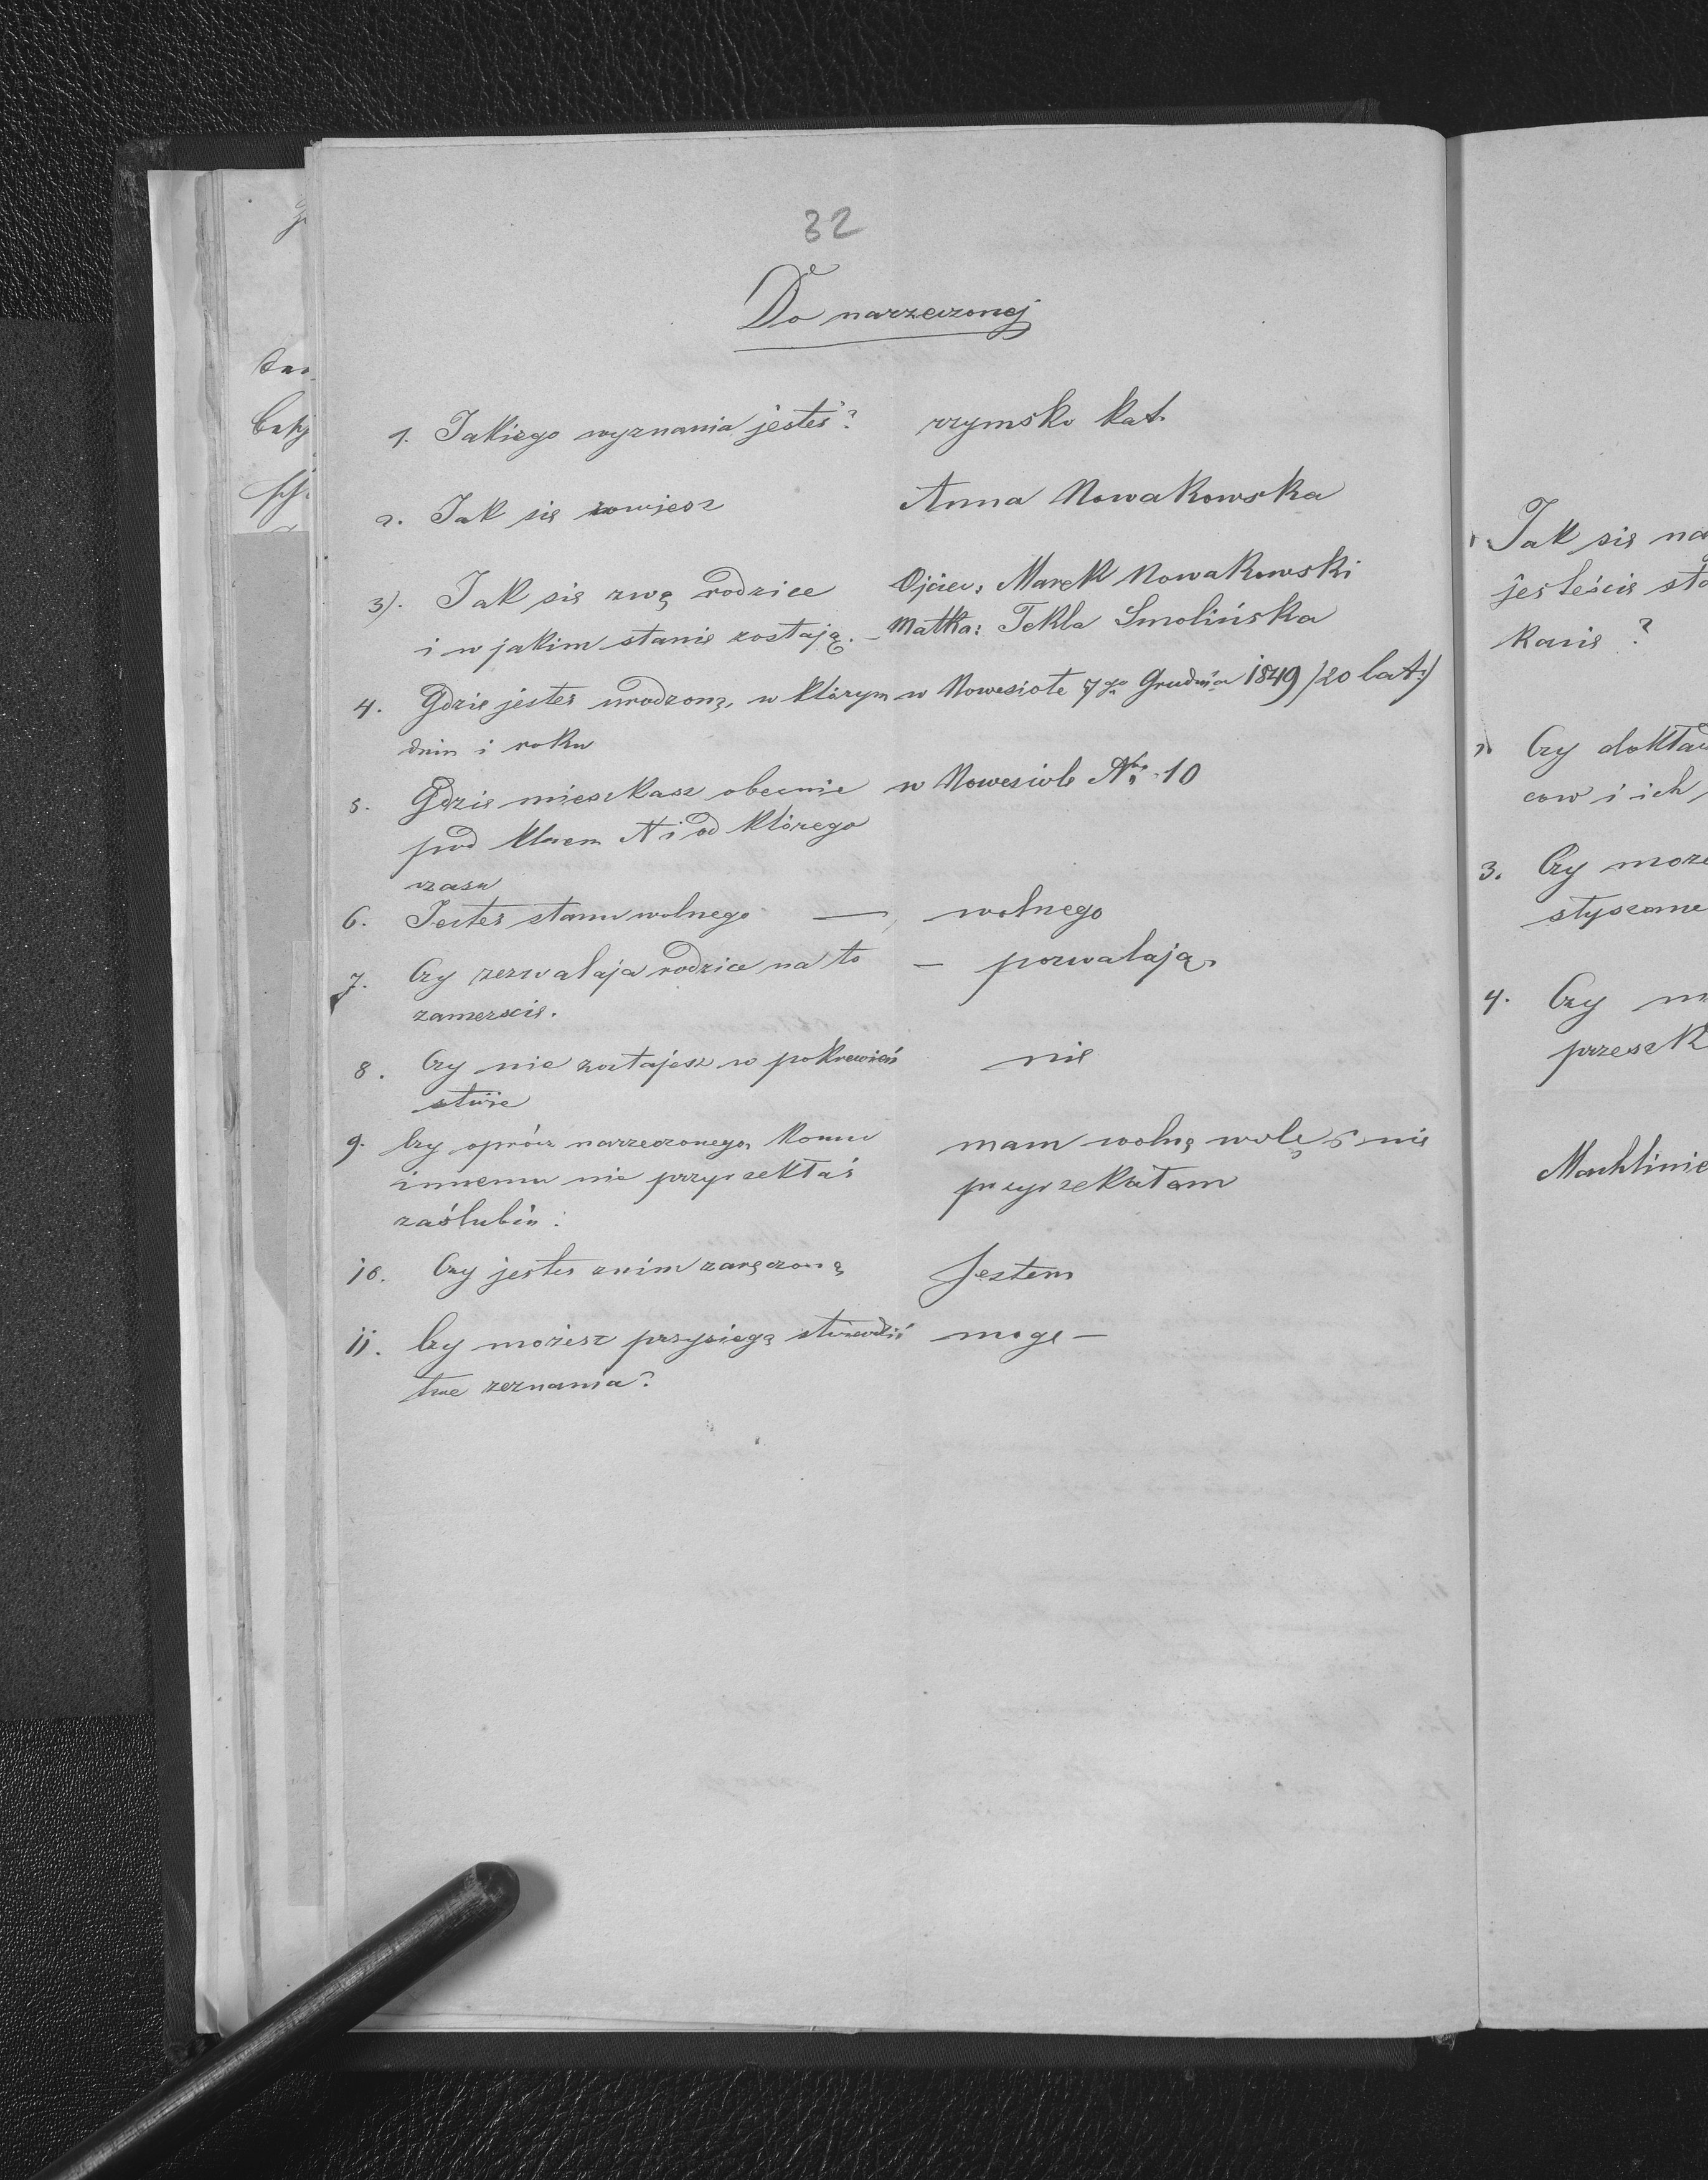 32
Do narzeczonej
1. Jakiego wyznania jesteś? rzymsko kat.
2. Jak się zowiesz Anna Nowakowska
3). Jak się zwą rodzice Ojciec, Marek Nowakowski
i w jakim stanie zostają. – Matka: Tekla Smolińska
4. Gdzie jesteś urodzoną, w którym w Nowesiole 7go Grudnia 1849 /20 lat:/
dniu i roku
5. Gdzie mieszkasz obecnie w Nowesiole Nro 10
pod którem N i od którego
czasu
6. Jesteś stanu wolnego — wolnego
7. Czy zezwalaja rodzice na to – pozwalają
zamęzcie.
8. Czy nie zostajesz w pokrewień nie
stwie
9. Czy oprócz narzeczonego, komu mam wolną wolę i nie
innemu nie przyrzekłaś przyrzekałam
zaślubin:
10. Czy jesteś z nim zaręczoną Jestem
11. Czy możesz przysięgą stwierdzić mogę –
twe zeznania?
Jak się na
jesteście sto
kanie?
Czy dokład
cow i ich
3. Czy może
słyszane
4. Czy
przeszk